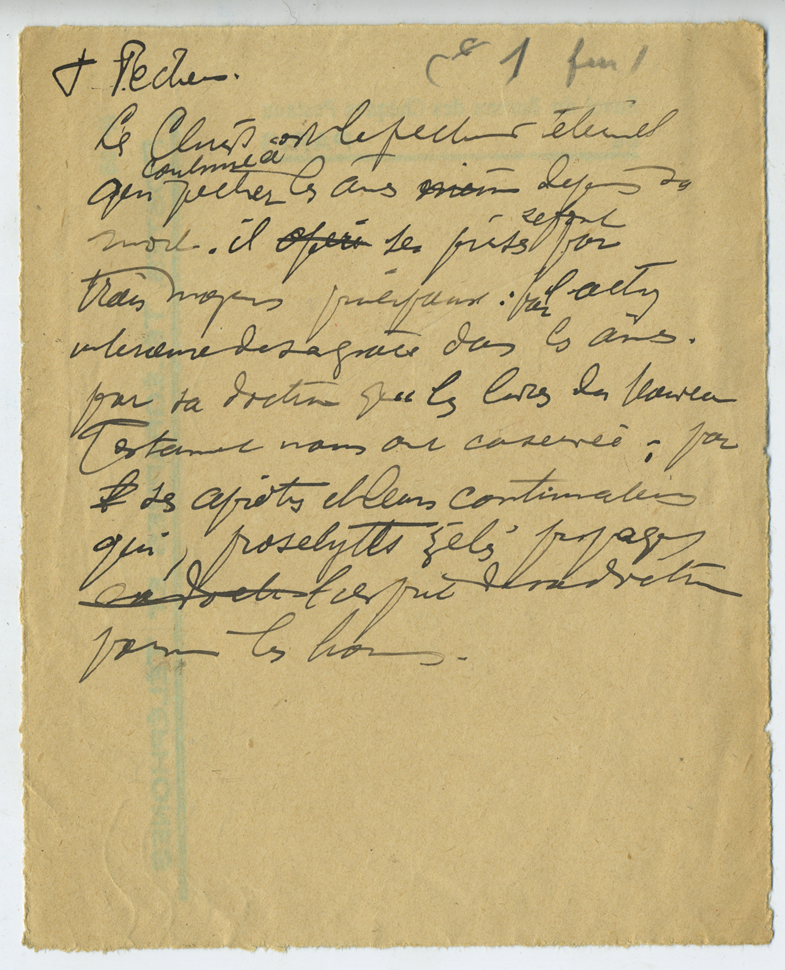 + Pecheur.
Le Christ est le pecheur éternel
qui continue à pecher les âmes même depuis sa
mort. il opère ses prises se font par
trois moyens principaux : par l'action
interieure de sa grace dans les âmes.
par sa doctrine que les livres du Nouveau
Testament nous ont conservée ; par
ses apôtres et leurs continuateurs
qui, proselytes zélés propagent
sa doctrine l'esprit de sa doctrine
parmi les hommes.
TELEPHONEES